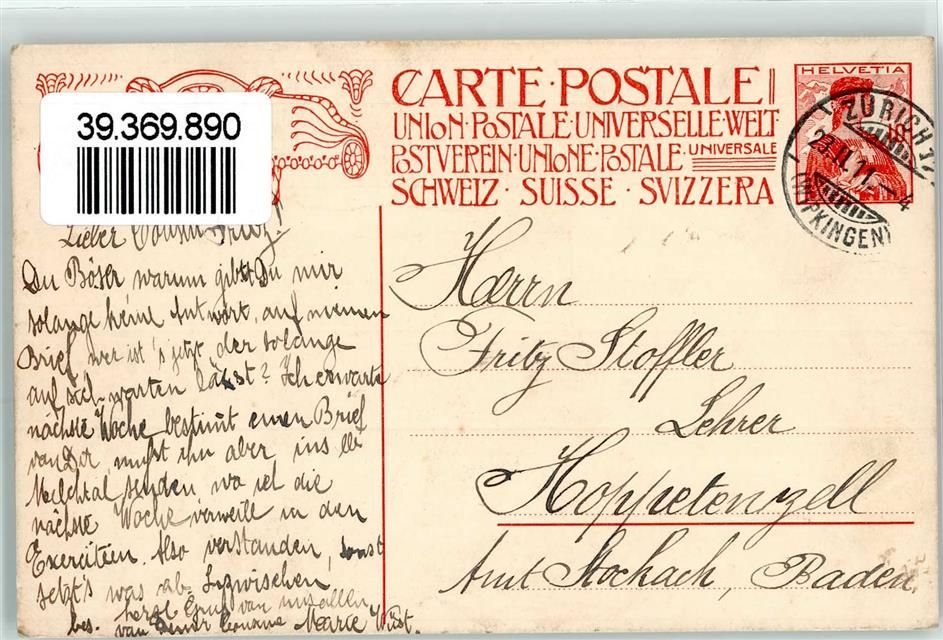 39.369.890
CARTE·POSTALE
UNION·POSTALE·UNIVERSELLE·WELT
POSTVEREIN·UNIONE·POSTALE·UNIVERSALE
SCHWEIZ · SUISSE · SVIZZERA
HELVETIA
ZÜRICH
23.II.11.-4
(WIPKINGEN)
Lieber Cousin Fritz!
Du Böser warum gibst Du mir
solange keine Antwort, auf meinen
Brief, wer ist's jetzt der solange
auf sich warten lässt? Ich erwarte
nächste Woche bestimt einen Brief
von Dir, mußt ihn aber ins
Melchtal senden, wo ich die
nächste Woche verweile in den
Exercitien. Also verstanden, sonst
setzt's was ab. Inzwischen
herzl. Gruß von uns allen
bes. von Deiner Cousine Marie Wüst.
Herrn
Fritz Stoffler
Lehrer
Hoppetenzell
Amt Stockach, Baden.